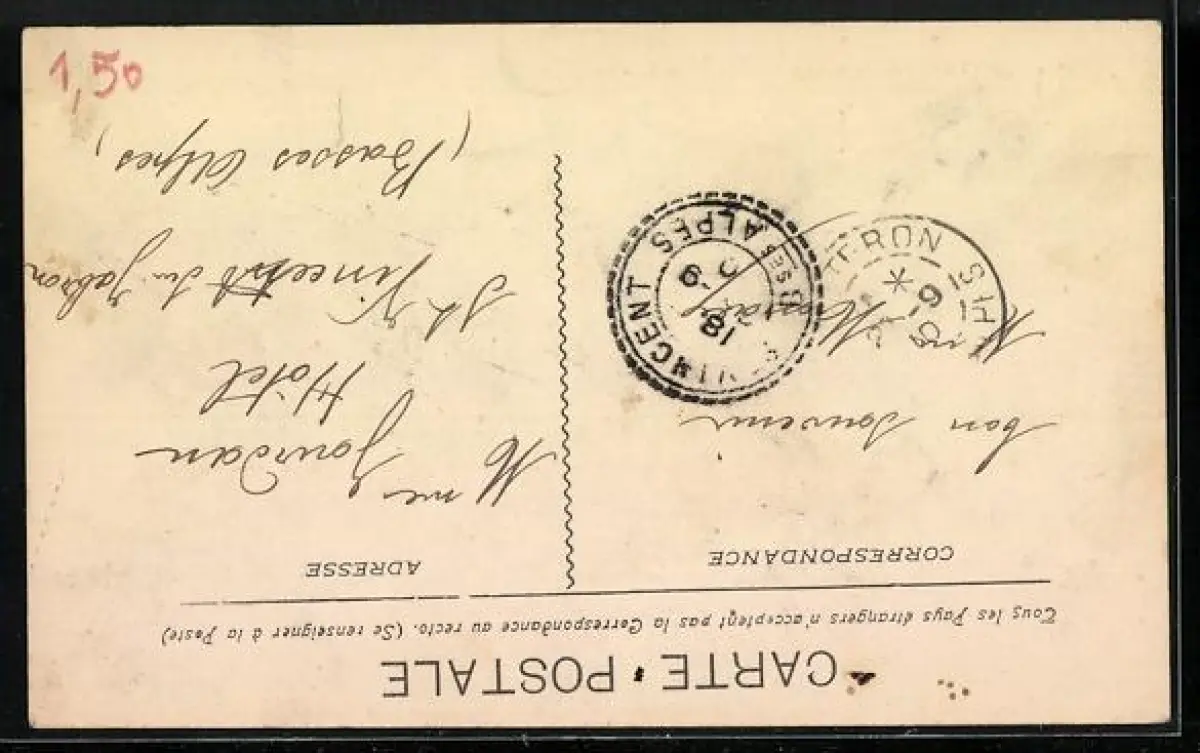 CARTE POSTALE
Tous les Pays étrangers n'acceptent pas la Correspondance au recto. (Se renseigner à la Poste)
CORRESPONDANCE
bon souvenir
ADRESSE
Mme Jourdan
Hôtel
St Vincent du Jabron
(Basses Alpes)
VINCENT
BSES ALPES
18
TERON
1,50